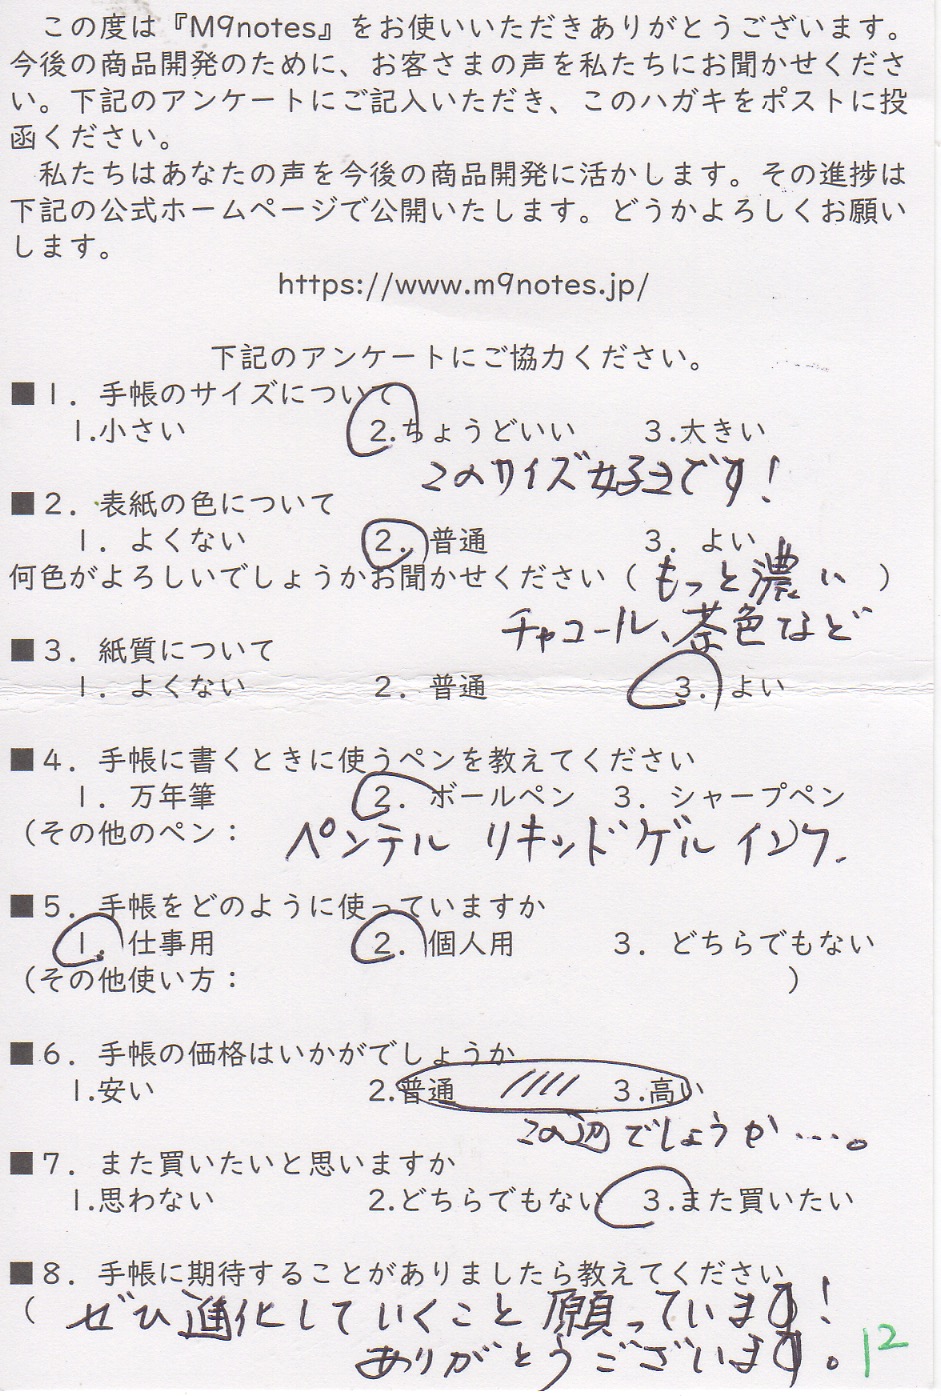 この度は『M9notes』をお使いいただきありがとうございます。
今後の商品開発のために、お客さまの声を私たちにお聞かせくださ
い。下記のアンケートにご記入いただき、このハガキをポストに投
函ください。
私たちはあなたの声を今後の商品開発に活かします。その進捗は
下記の公式ホームページで公開いたします。どうかよろしくお願い
します。
https://www.m9notes.jp/
下記のアンケートにご協力ください。
■1. 手帳のサイズについて
1.小さい 2.ちょうどいい 3.大きい
このサイズ好きです!
■2. 表紙の色について
1. よくない 2. 普通 3. よい
何色がよろしいでしょうかお聞かせください（もっと濃い）
チャコール、茶色など
■3. 紙質について
1. よくない 2. 普通 3. よい
■4. 手帳に書くときに使うペンを教えてください
1. 万年筆 2. ボールペン 3. シャープペン
（その他のペン： ペンテル リキッドゲルインク.
■5. 手帳をどのように使っていますか
1. 仕事用 2. 個人用 3. どちらでもない
（その他使い方： ）
■6. 手帳の価格はいかがでしょうか
1.安い 2.普通 3.高い
この辺でしょうか….。
■7. また買いたいと思いますか
1.思わない 2.どちらでもない 3.また買いたい
■8. 手帳に期待することがありましたら教えてください
（ ぜひ進化していくこと願っています!
ありがとうございます。 12